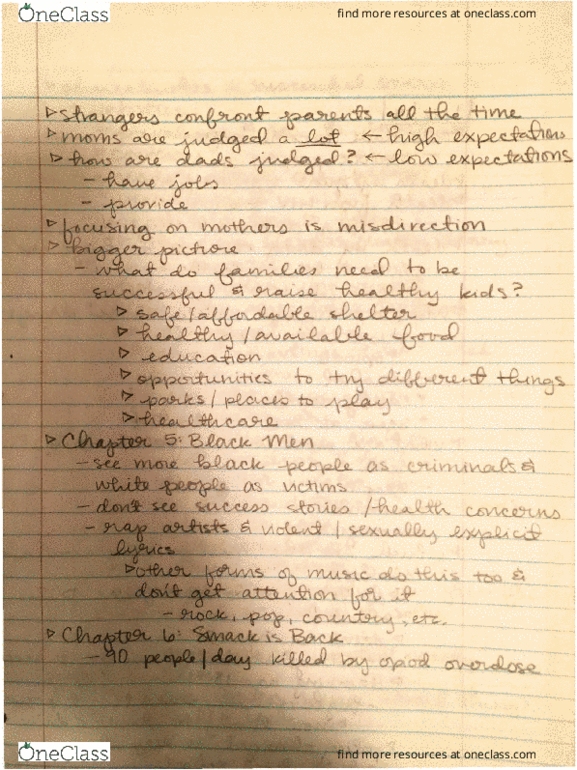 OneClass
find more resources at oneclass.com
▷ strangers confront parents all the time
▷ moms are judged a lot ← high expectations
▷ how are dads judged? ← low expectations
- have jobs
- provide
▷ focusing on mothers is misdirection
▷ bigger picture
- what do families need to be
successful & raise healthy kids?
▷ safe/affordable shelter
▷ healthy/available food
▷ education
▷ opportunities to try different things
▷ parks/places to play
▷ healthcare
▷ Chapter 5: Black Men
- see more black people as criminals &
white people as victims
- don't see success stories/health concerns
- rap artists & violent/sexually explicit
lyrics
▷ other forms of music do this too &
don't get attention for it
- rock, pop, country, etc.
▷ Chapter 6: Smack is Back
- 90 people/day killed by opiod overdose
OneClass
find more resources at oneclass.com